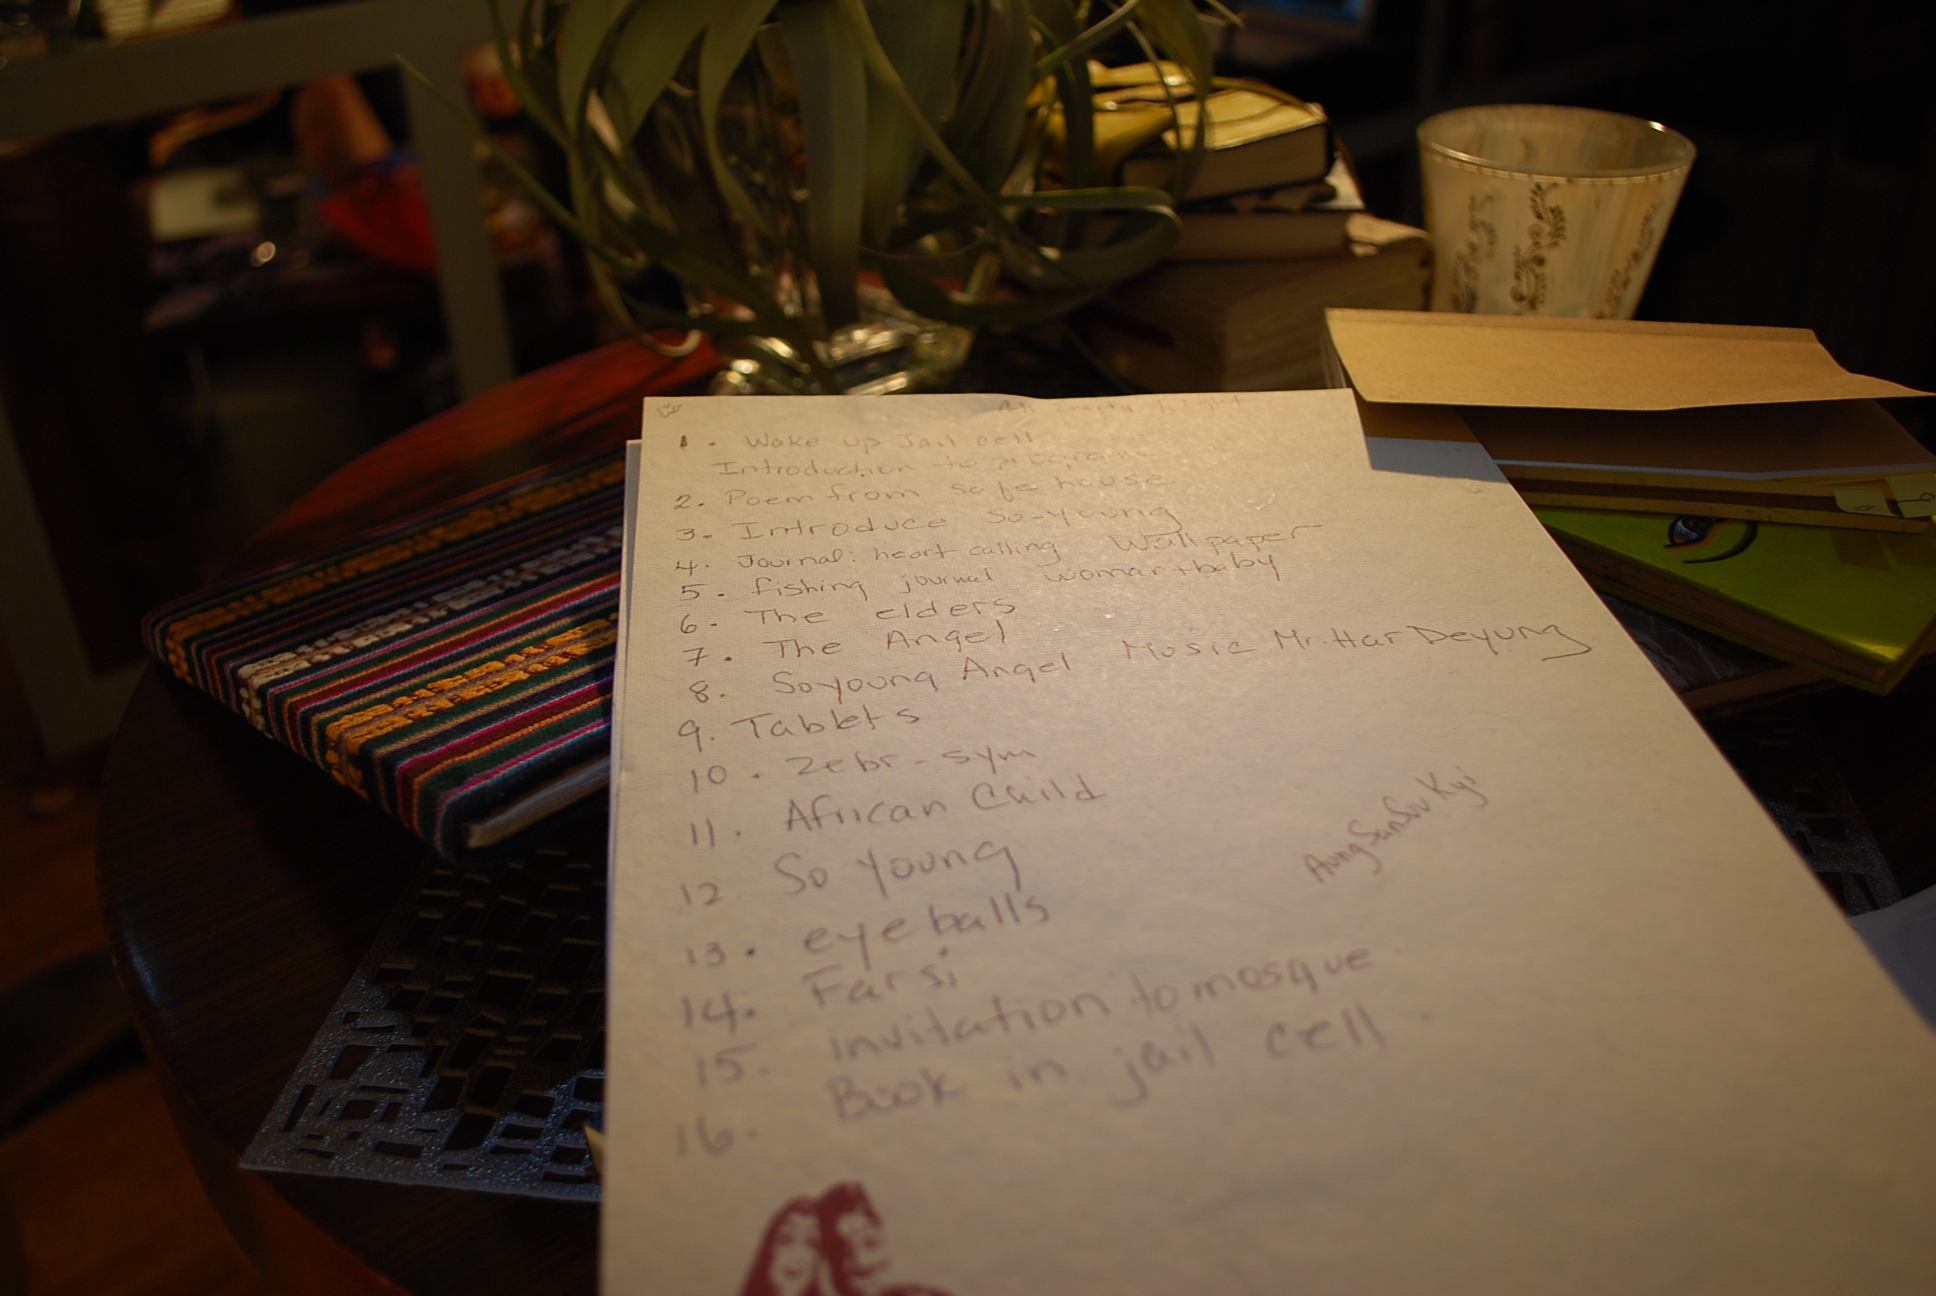 1. Wake up Jail cell
Introduction to program
2. Poem from safe house
3. Introduce So-young
4. Journal: heart calling Wallpaper
5. fishing journal woman+baby
6. The elders
7. The Angel
8. Soyoung Angel Music Mr. Har Deyung
9. Tablets
10. Zebr-sym
11. African Child
12. So Young
Aung San Suu Kyi
13. eyeballs
14. Farsi
15. invitation to mosque
16. Book in jail cell